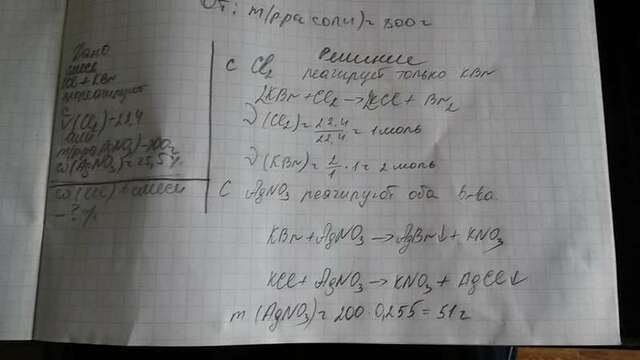 От: m(рра соли)= 800г
Дано
смесь
KCl + KBr
прореагирует
с
V(Cl2)=22,4
или
m(рра AgNO3)=200г
w(AgNO3)=25,5%
w(KCl) в смеси
-? %
Решение
С Cl2 реагирует только KBr
2KBr+Cl2→2KCl+Br2
ν(Cl2)=22.4/22,4=1моль
ν(KBr)=2/1·1=2 моль
С AgNO3 реагируют оба в-ва.
KBr+AgNO3→AgBr↓+KNO3
KCl+AgNO3→KNO3+AgCl↓
m(AgNO3)=200·0,255=51г